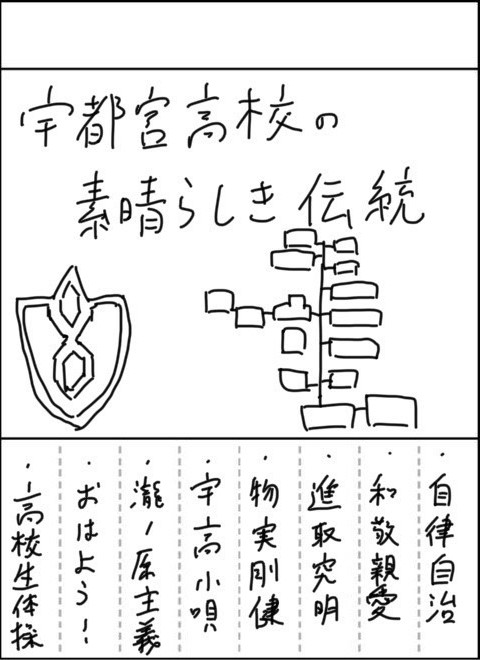 宇都宮高校の
素晴らしき伝統
・自律自治
・和敬親愛
・進取究明
・質実剛健
・宇高小唄
・瀧ノ原主義
・おはよう！
・高校生体操